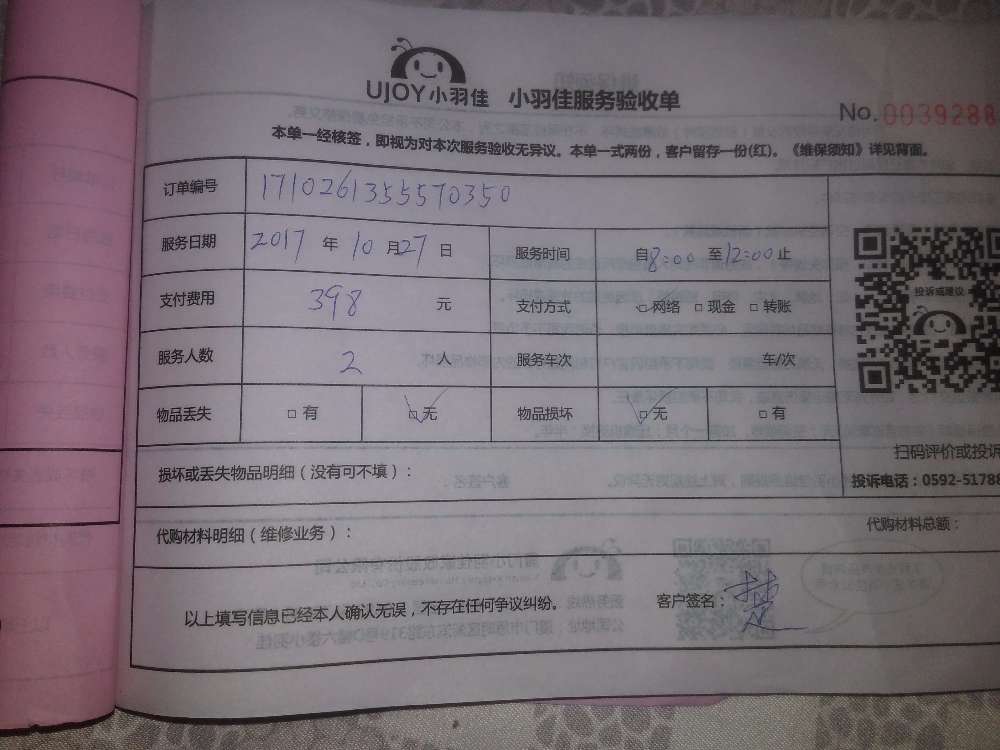 UJOY小羽佳 小羽佳服务验收单
No. 0039288
本单一经核签，即视为对本次服务验收无异议。本单一式两份，客户留存一份(红)。《维保须知》详见背面。
订单编号 1710261355570350
服务日期 2017 年 10 月 27 日 服务时间 自8:00 至12:00止
支付费用 398 元 支付方式 ☑网络 □现金 □转账
投诉或建议
服务人数 2 人 服务车次 车/次
物品丢失 □有 ☑无 物品损坏 ☑无 □有
扫码评价或投诉
损坏或丢失物品明细（没有可不填）：
投诉电话：0592-51788
代购材料明细（维修业务）：
代购材料总额：
以上填写信息已经本人确认无误，不存在任何争议纠纷。 客户签名：楚